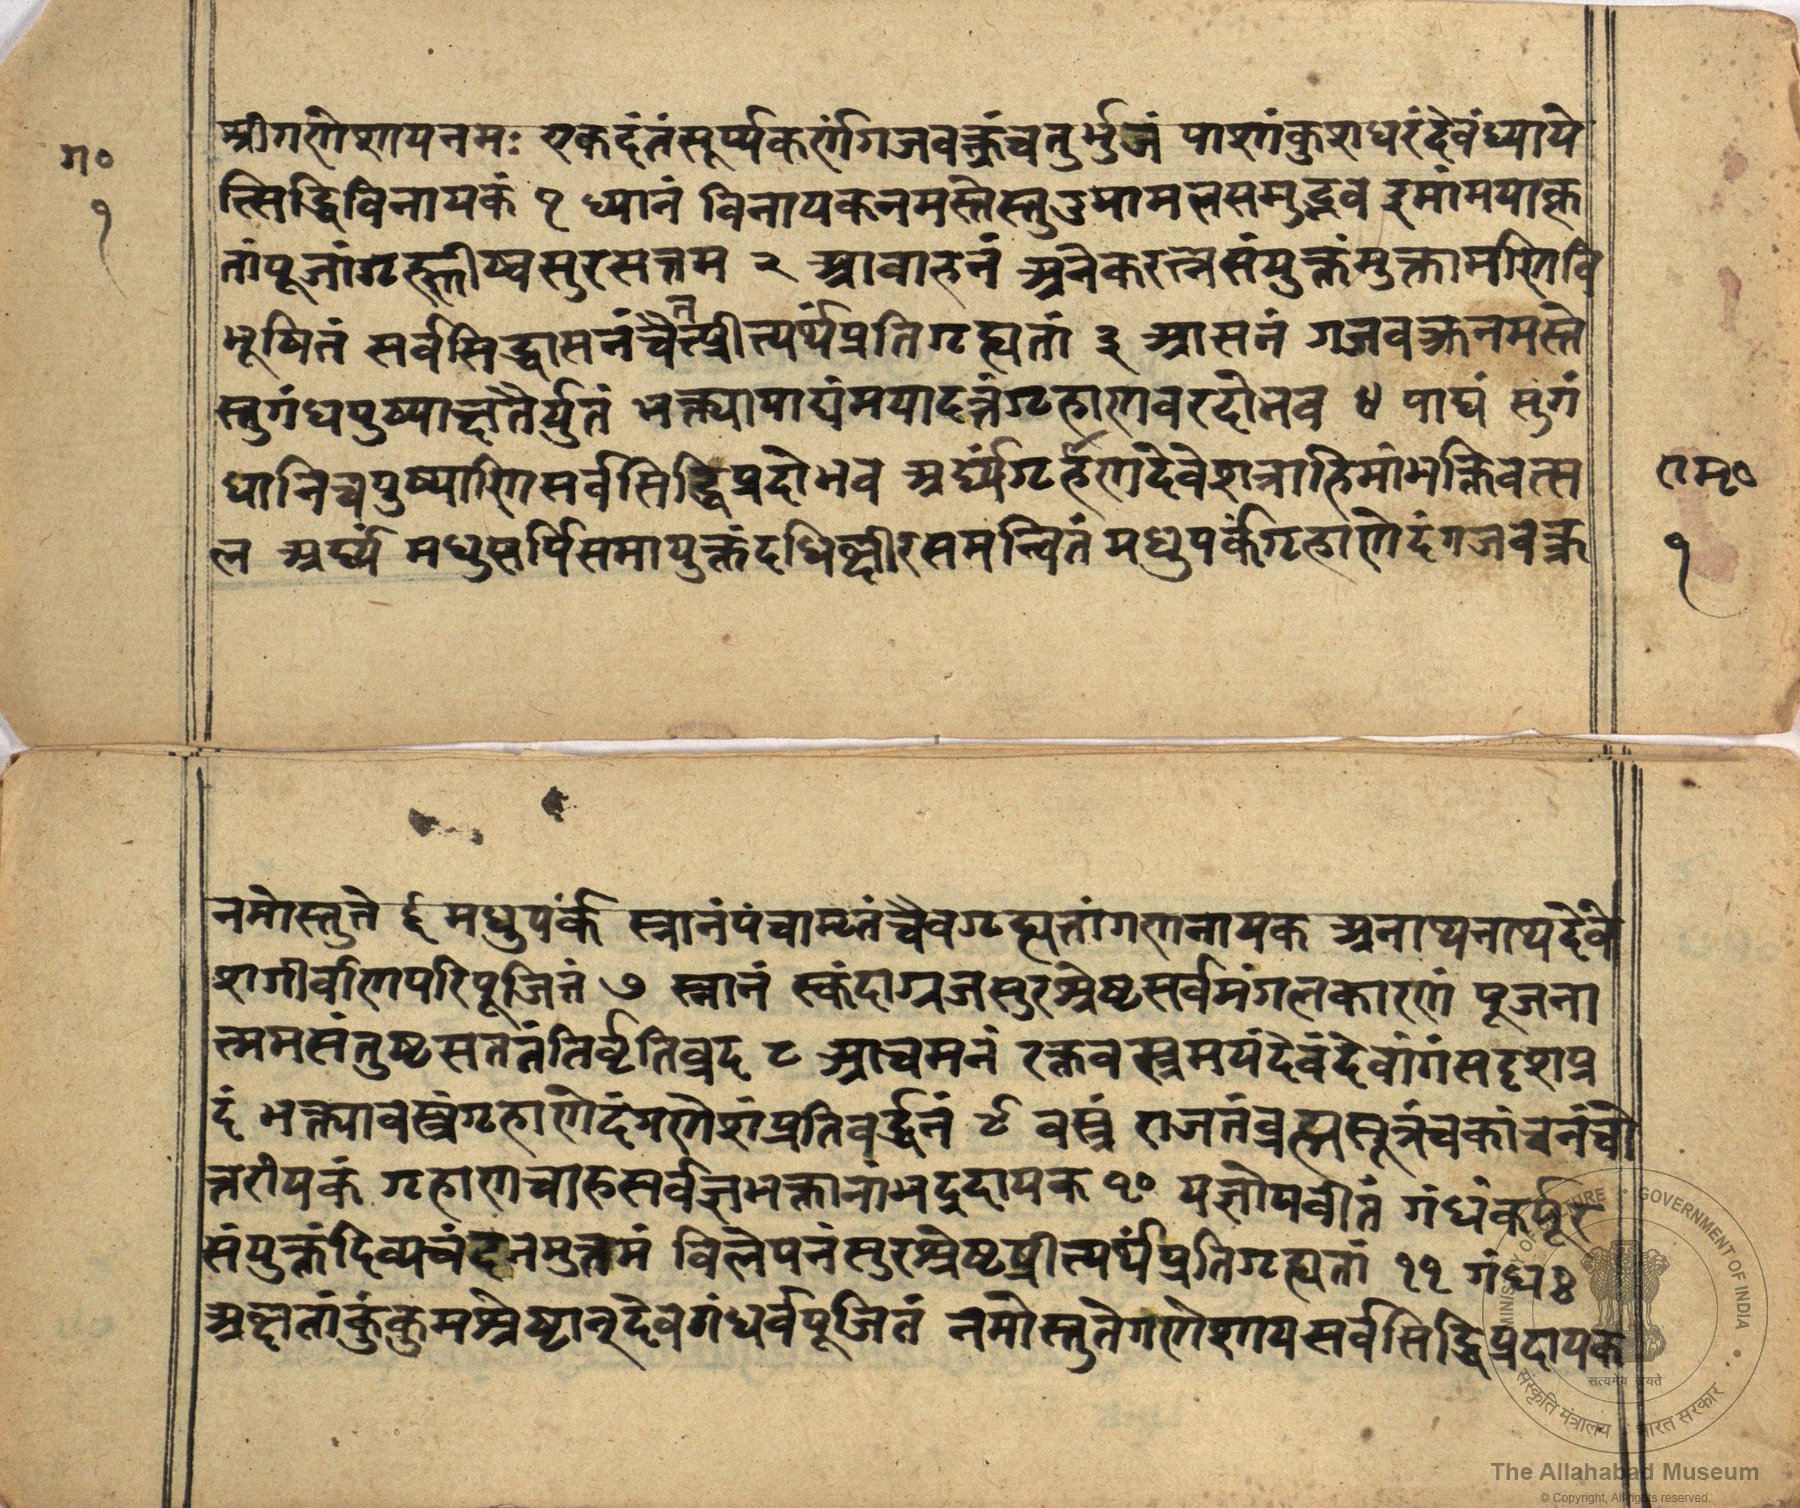 ग॰
१
श्रीगणेशायनमः एकदंतंसूर्प्पकर्णंगजवक्त्रंचतुर्भुजं पाशांकुशधरंदेवंध्याये
त्सिद्धिविनायकं १ ध्यानं विनायकनमस्तेस्तुउमामलसमुद्भव इमांमयाकृ
तांपूजांगृह्णीष्वसुरसत्तम २ आवाहनं अनेकरत्नसंयुक्तंमुक्तामणिवि
भूषितं सर्वसिद्धासनंचैतत्प्रीत्यर्थंप्रतिगृह्यतां ३ आसनं गजवक्त्रनमस्ते
स्तुगंधपुष्पाक्षतैर्युतं भक्त्यापाद्यंमयादत्तंगृहाणवरदोभव ४ पाद्यं सुगं
धानिचपुष्पाणिसर्वसिद्धिप्रदोभव अर्घ्यंगृहाणदेवेशत्राहिमांभक्तिवत्स
ल अर्घ्यं मधुसर्पिसमायुक्तंदधिक्षीरसमन्वितं मधुपर्कंगृहाणेदंगजवक्त्र
राम॰
१
नमोस्तुते ६ मधुपर्कं स्नानंपंचामृतंचैवगृह्यतांगणनायक अनाथ्यनाथ्यदेवे
शगीर्वाणपरिपूजितं ७ स्नानं स्कंदाग्रजसुरश्रेष्ठसर्वमंगलकारणं पूजना
त्ममसंतुष्टसततंतिर्वृतिव्रद ८ आचमनं रक्तवस्त्रमयंदेवंदेवांगंसदृशप्र
दं भक्त्यावस्त्रंगृहाणेदंगणेशंप्रतिवर्द्धनं ९ वस्त्रं राजतंब्रह्मसूत्रंचकांचनंचो
त्तरीयकं गृहाणचारुसर्वज्ञभक्तानांभद्रदायक १० यज्ञोपवीतं गंधंकर्पूर
संयुक्तंदिव्यचंदनमुत्तमं विलेपनंसुरश्रेष्ठप्रीत्यर्थंप्रतिगृह्यतां ११ गंधः
अक्षतांकुंकुमश्रेष्ठान्देवगंधर्वपूजितं नमोस्तुतेगणेशायसर्वसिद्धिप्रदायक
MINISTRY OF CULTURE • GOVERNMENT OF INDIA
सत्यमेव जयते
संस्कृति मंत्रालय भारत सरकार
The Allahabad Museum
© Copyright, All rights reserved.